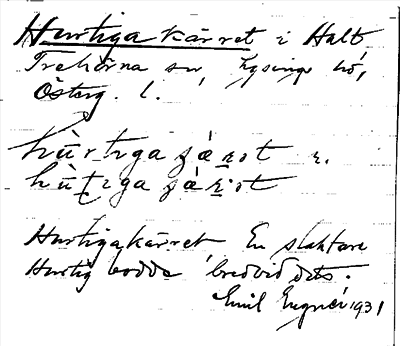 Hurtiga kärret i Halt
Trehörna sn, Lysings hd,
Österg. l.
hùrtiga
Hurtigakärret En slaktare
Hurtig bodde bredvid dets.
Emil Engnér 1931